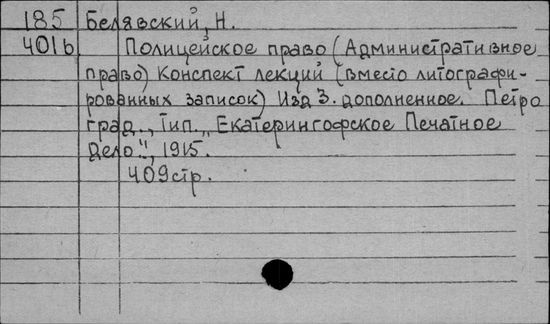 185 Белявский, Н.
401b Полицейское право (Административное
право) Конспект лекций (вместо литографи-
рованных записок) Изд 3. дополненное. Петро
град., Тип., „Екатерингофское Печатное
Дело", 1915.
409 стр.